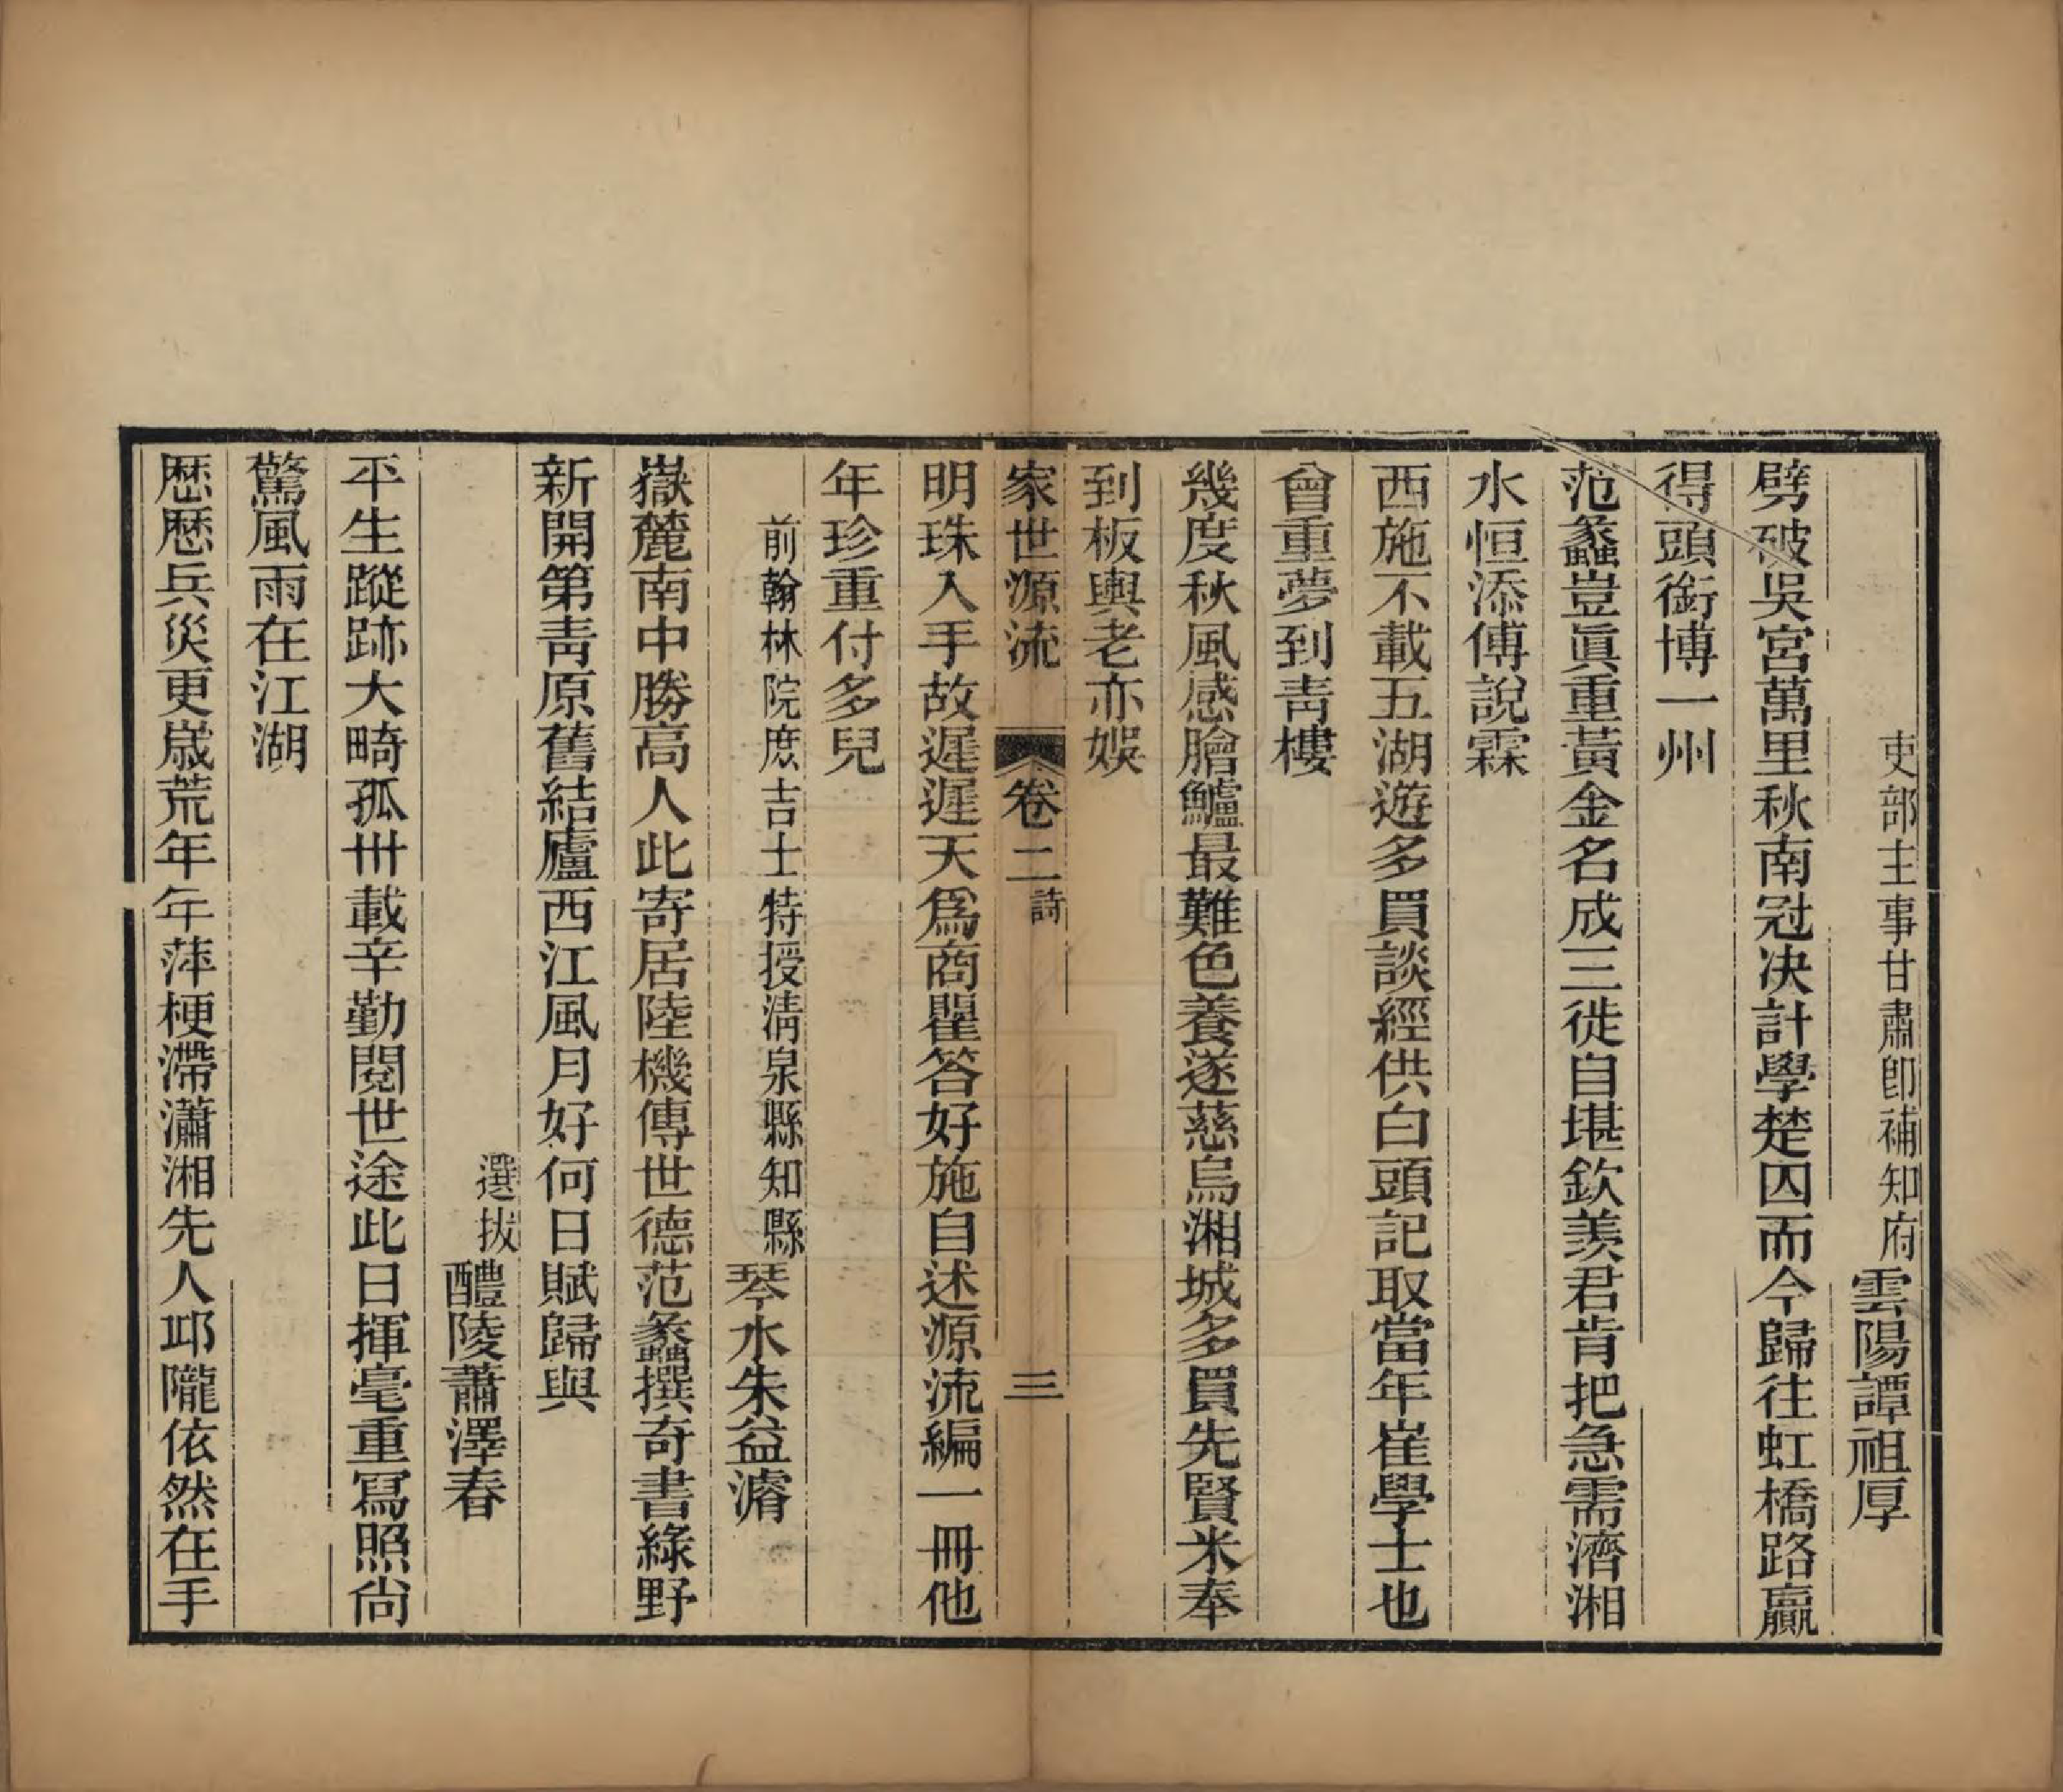 吏部主事甘肅卽補知府雲陽譚祖厚
劈破吳宮萬里秋南冠决計學楚囚而今歸往虹橋路贏
得頭銜博一州
范蠡豈眞重黃金名成三徙自堪欽羨君肯把急需濟湘
水恒添傅說霖
西施不載五湖遊多買談經供白頭記取當年崔學士也
曾重夢到靑樓
幾度秋風感膾鱸最難色養遂慈烏湘城多買先賢米奉
到板輿老亦娛
家世源流 卷二 詩 三
明珠入手故遲遲天爲商瞿答好施自述源流編一冊他
年珍重付多兒
前翰林院庶吉士特授淸泉縣知縣琴水朱益濬
嶽麓南中勝高人此寄居陸機傳世德范蠡撰奇書綠野
新開第靑原舊結廬西江風月好何日賦歸與
選拔醴陵蕭澤春
平生蹤跡大畸孤卅載辛勤閱世途此日揮毫重寫照尙
驚風雨在江湖
歴歴兵災更嵗荒年年萍梗滯瀟湘先人邱隴依然在手